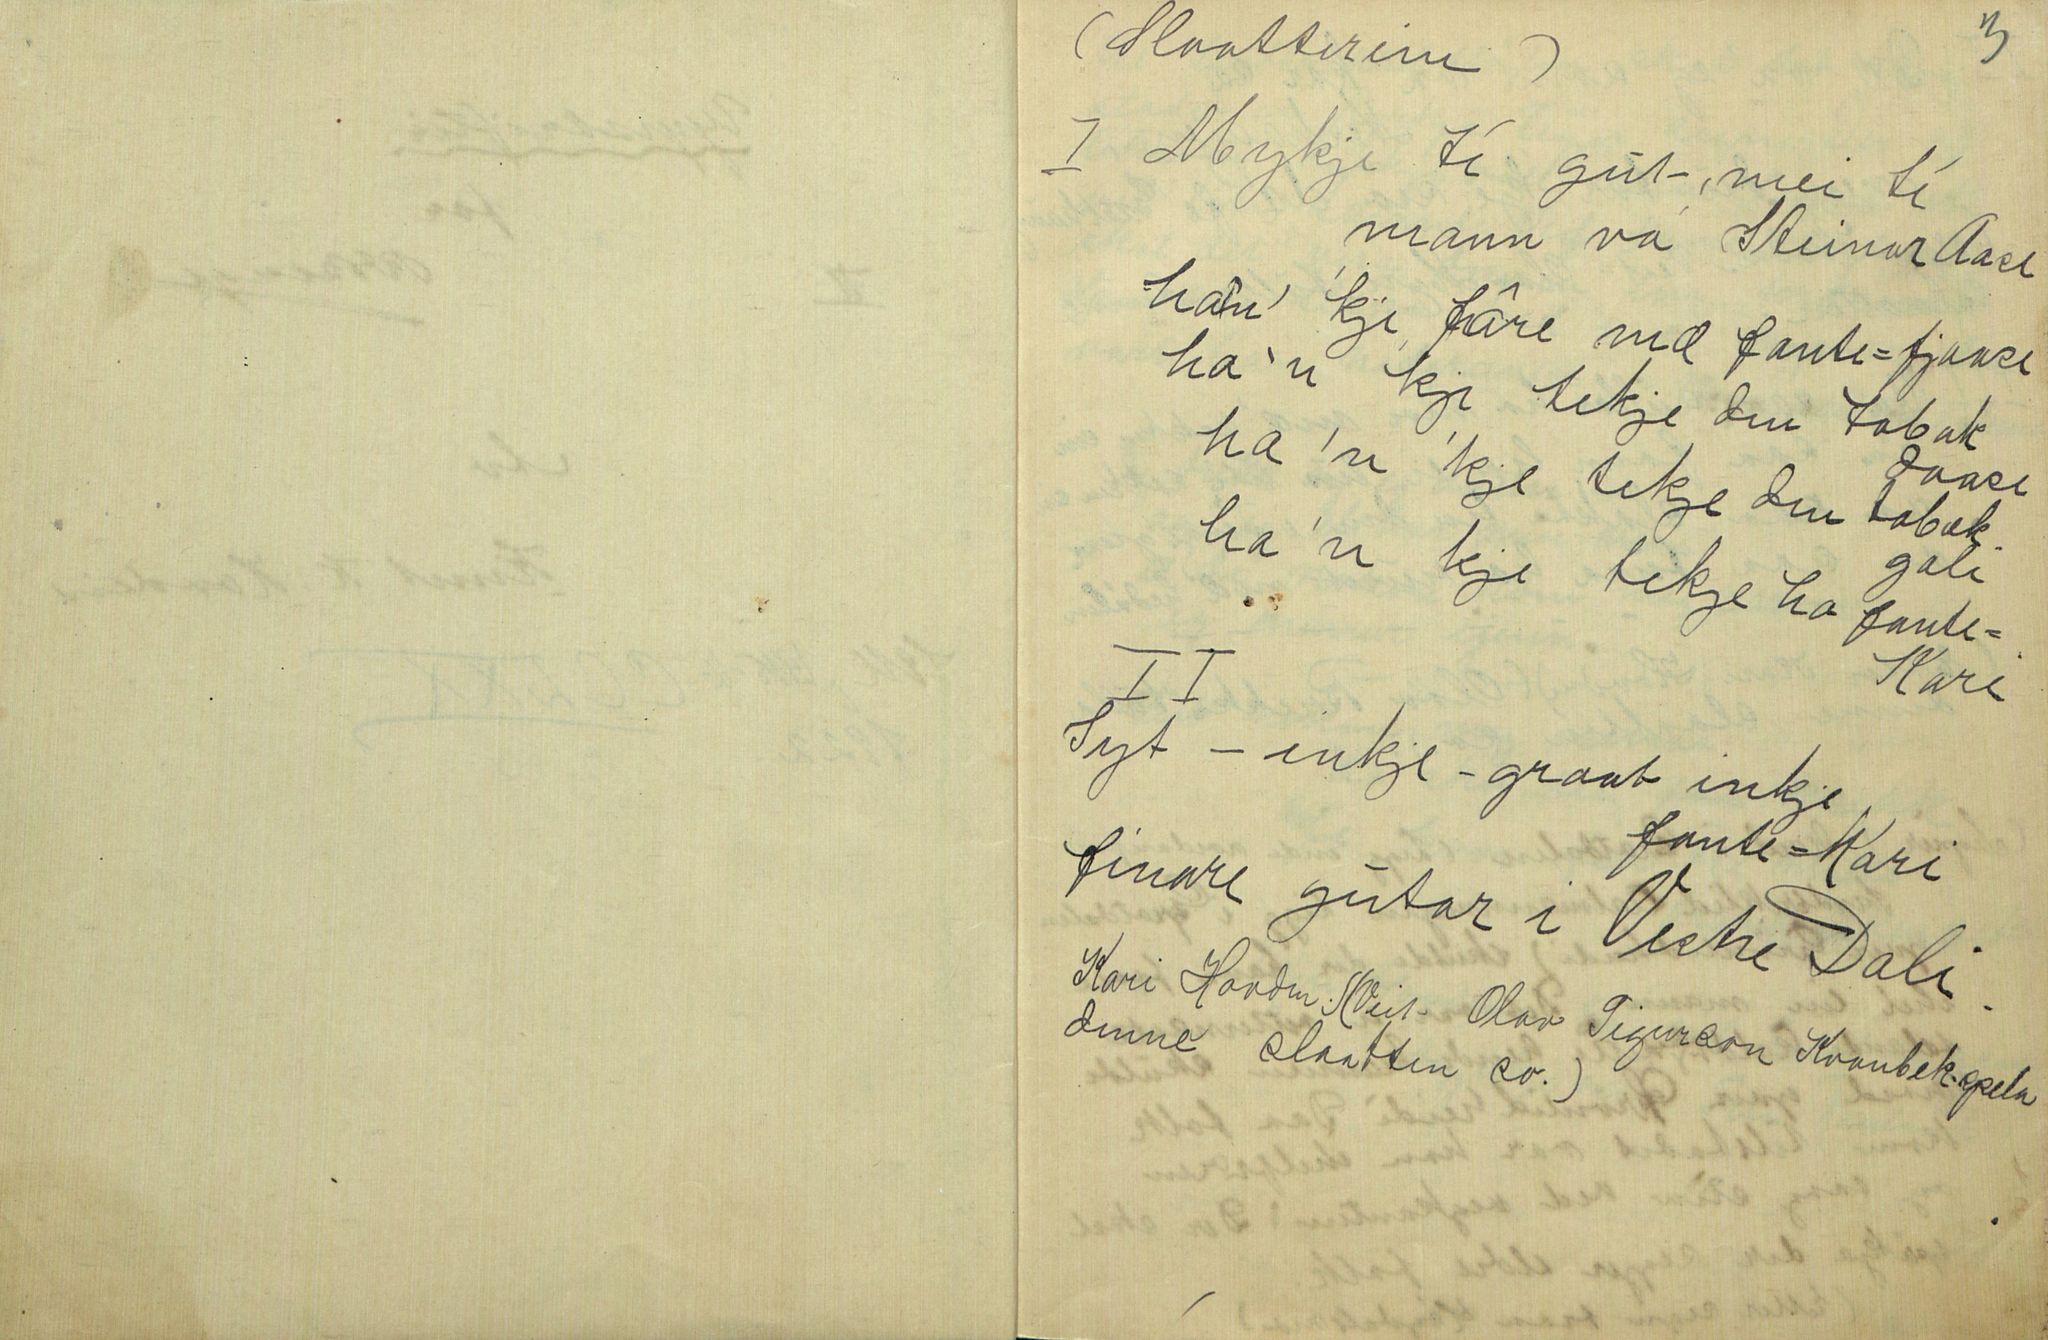 (Slaatterim)
3
I Mykje ti gut, mei ti
mann va Steinar Aase
ha'n 'kje fâre mæ fante=fjaase
ha'n 'kje tekje den tobak
daase
ha'n 'kje tekje den tobak
gali
ha'n kje tekje ha fante=
Kari
II
Syt - inkje - graat inkje
fante=Kari
finare gūtar i Vestre Dali.
Kari Hovden. (Veit Olav Sigurson Kvanbek spela
denne slaatten so.)